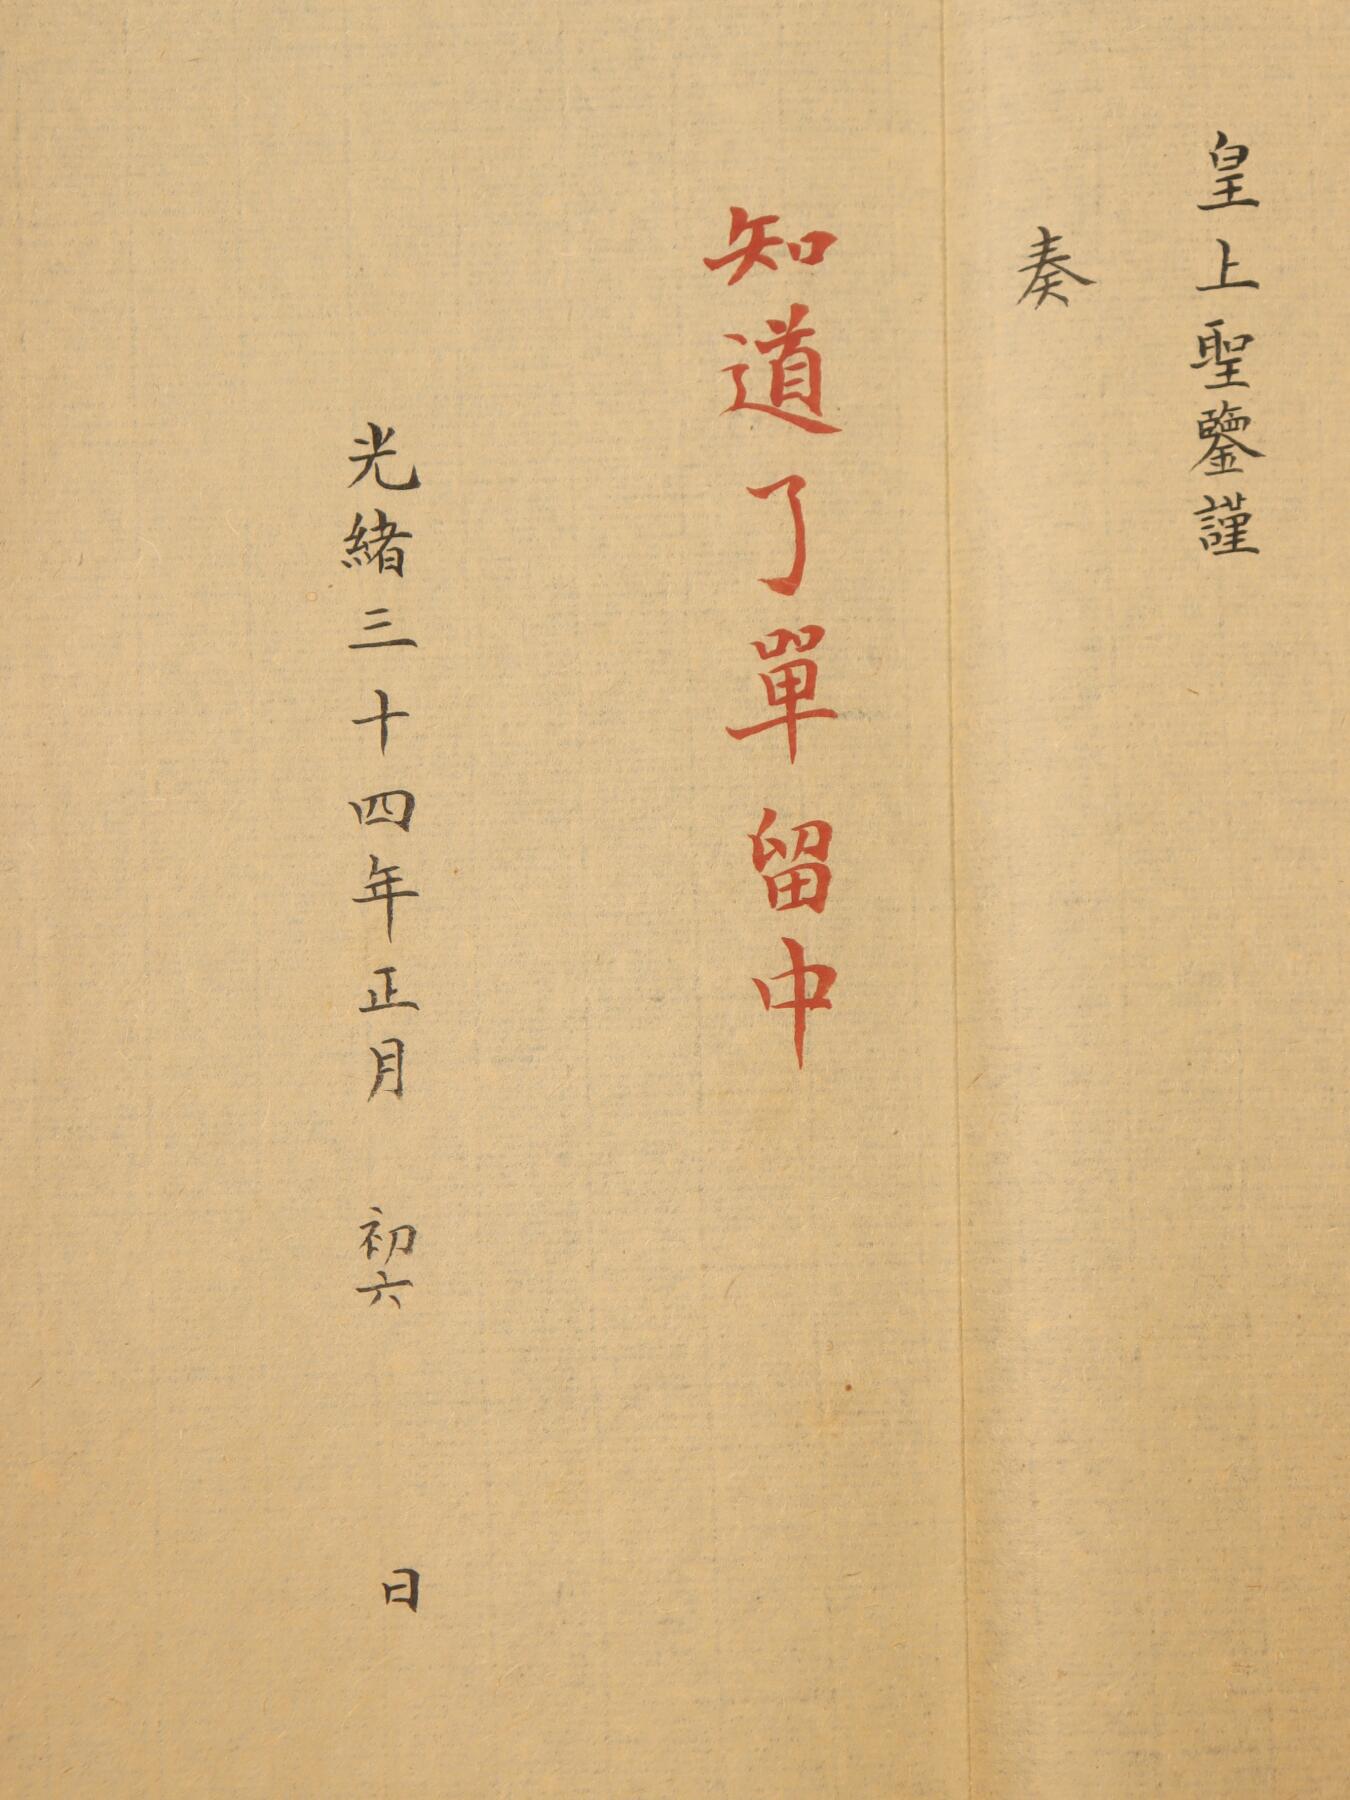 皇上聖鑒謹
奏
知道了單留中
光緒三十四年正月初六日